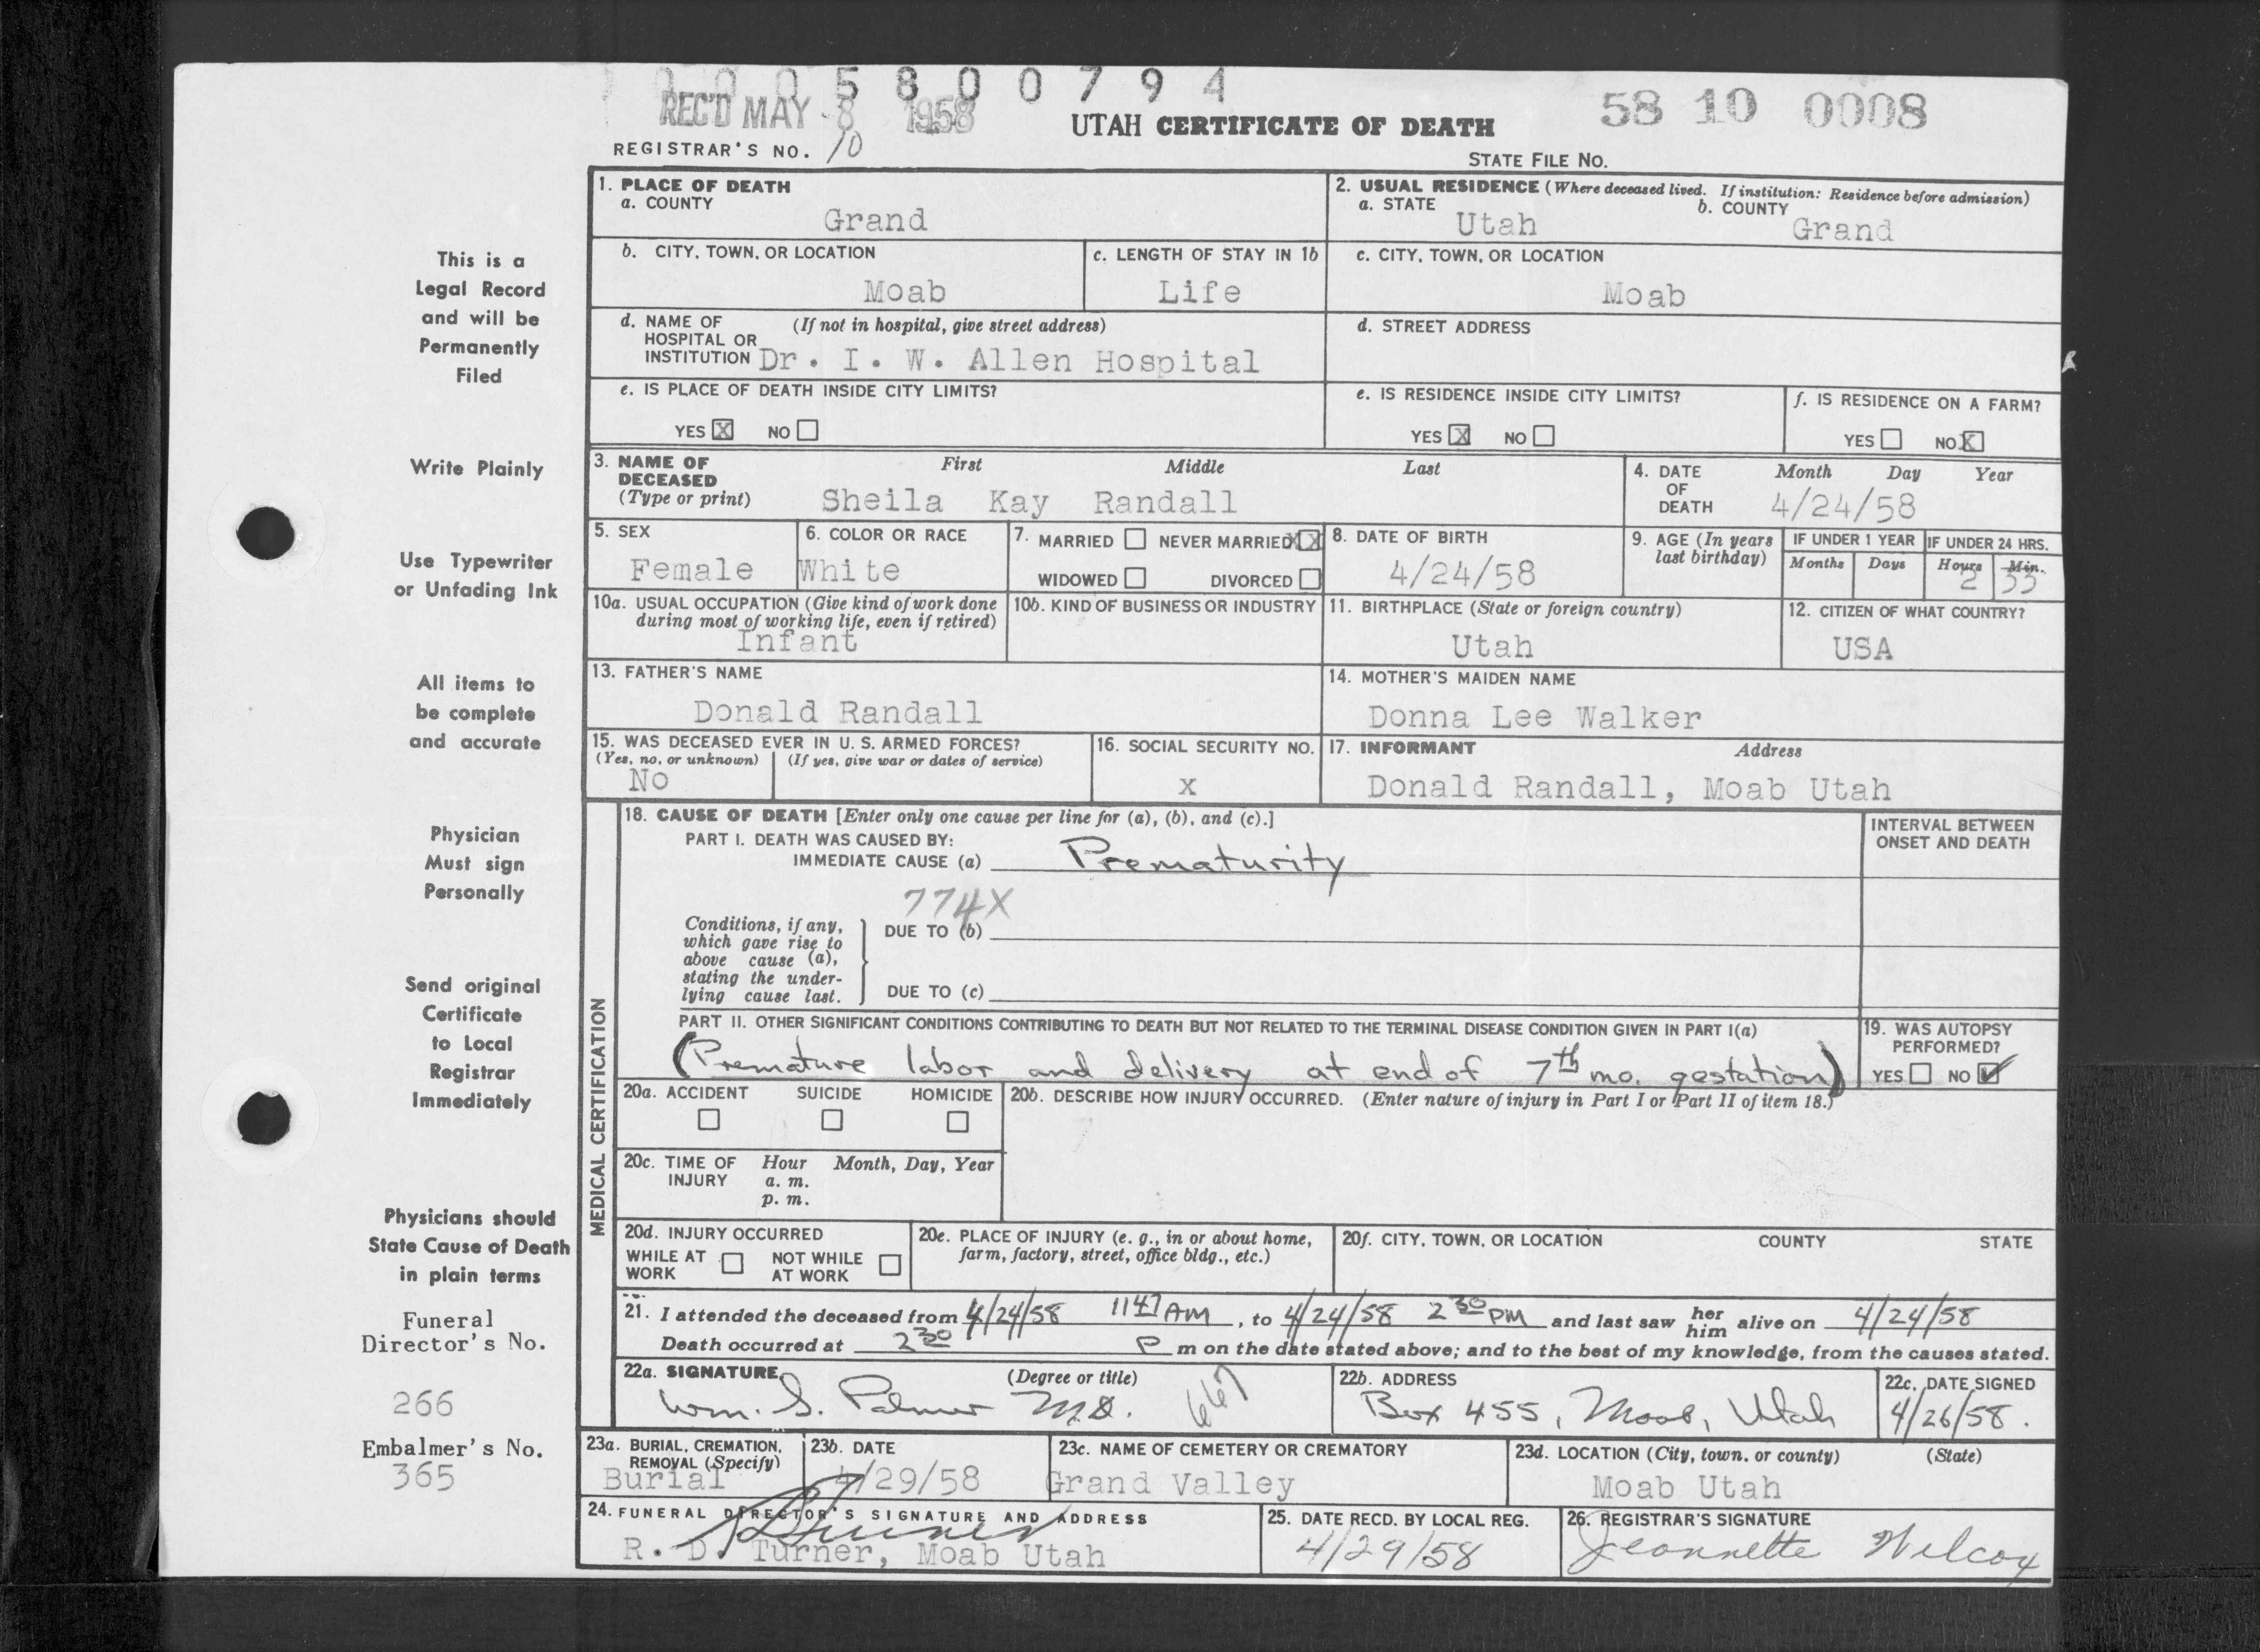 0 0 0 5 8 0 0 7 9 4
REC'D MAY 8 1958
58 10 0008
UTAH CERTIFICATE OF DEATH
REGISTRAR'S NO. 10
STATE FILE NO.
1. PLACE OF DEATH
a. COUNTY
Grand
2. USUAL RESIDENCE (Where deceased lived. If institution: Residence before admission)
a. STATE
Utah
b. COUNTY
Grand
b. CITY, TOWN, OR LOCATION
Moab
c. LENGTH OF STAY IN 1b
Life
c. CITY, TOWN, OR LOCATION
Moab
d. NAME OF HOSPITAL OR INSTITUTION (If not in hospital, give street address)
Dr. I. W. Allen Hospital
d. STREET ADDRESS
e. IS PLACE OF DEATH INSIDE CITY LIMITS?
YES X NO
e. IS RESIDENCE INSIDE CITY LIMITS?
YES X NO
f. IS RESIDENCE ON A FARM?
YES NO X
3. NAME OF DECEASED (Type or print)
First Middle Last
Sheila Kay Randall
4. DATE OF DEATH
Month Day Year
4/24/58
5. SEX
Female
6. COLOR OR RACE
White
7. MARRIED NEVER MARRIED XX
WIDOWED DIVORCED
8. DATE OF BIRTH
4/24/58
9. AGE (In years last birthday)
IF UNDER 1 YEAR
Months Days
IF UNDER 24 HRS.
Hours Min.
2
10a. USUAL OCCUPATION (Give kind of work done during most of working life, even if retired)
Infant
10b. KIND OF BUSINESS OR INDUSTRY
11. BIRTHPLACE (State or foreign country)
Utah
12. CITIZEN OF WHAT COUNTRY?
USA
13. FATHER'S NAME
Donald Randall
14. MOTHER'S MAIDEN NAME
Donna Lee Walker
15. WAS DECEASED EVER IN U. S. ARMED FORCES?
(Yes, no, or unknown) (If yes, give war or dates of service)
No
16. SOCIAL SECURITY NO.
x
17. INFORMANT Address
Donald Randall, Moab Utah
MEDICAL CERTIFICATION
18. CAUSE OF DEATH [Enter only one cause per line for (a), (b), and (c).]
INTERVAL BETWEEN ONSET AND DEATH
PART I. DEATH WAS CAUSED BY:
IMMEDIATE CAUSE (a) Prematurity
774X
Conditions, if any, which gave rise to above cause (a), stating the underlying cause last.
DUE TO (b)
DUE TO (c)
PART II. OTHER SIGNIFICANT CONDITIONS CONTRIBUTING TO DEATH BUT NOT RELATED TO THE TERMINAL DISEASE CONDITION GIVEN IN PART I(a)
(Premature labor and delivery at end of 7th mo. gestation)
19. WAS AUTOPSY PERFORMED?
YES NO ✓
20a. ACCIDENT SUICIDE HOMICIDE
20b. DESCRIBE HOW INJURY OCCURRED. (Enter nature of injury in Part I or Part II of item 18.)
20c. TIME OF INJURY Hour Month, Day, Year
a. m.
p. m.
20d. INJURY OCCURRED
WHILE AT WORK NOT WHILE AT WORK
20e. PLACE OF INJURY (e. g., in or about home, farm, factory, street, office bldg., etc.)
20f. CITY, TOWN, OR LOCATION COUNTY STATE
21. I attended the deceased from 4/24/58 1147 AM, to 4/24/58 230 PM and last saw her him alive on 4/24/58
Death occurred at 230 P m on the date stated above; and to the best of my knowledge, from the causes stated.
22a. SIGNATURE (Degree or title)
Wm. S. Palmer M.D. 667
22b. ADDRESS
Box 455, Moab, Utah
22c. DATE SIGNED
4/26/58.
23a. BURIAL, CREMATION, REMOVAL (Specify)
Burial
23b. DATE
4/29/58
23c. NAME OF CEMETERY OR CREMATORY
Grand Valley
23d. LOCATION (City, town, or county) (State)
Moab Utah
24. FUNERAL DIRECTOR'S SIGNATURE AND ADDRESS
R. D. Turner, Moab Utah
25. DATE RECD. BY LOCAL REG.
4/29/58
26. REGISTRAR'S SIGNATURE
Jeannette Wilcox
This is a
Legal Record
and will be
Permanently
Filed
Write Plainly
Use Typewriter
or Unfading Ink
All items to
be complete
and accurate
Physician
Must sign
Personally
Send original
Certificate
to Local
Registrar
Immediately
Physicians should
State Cause of Death
in plain terms
Funeral
Director's No.
266
Embalmer's No.
365